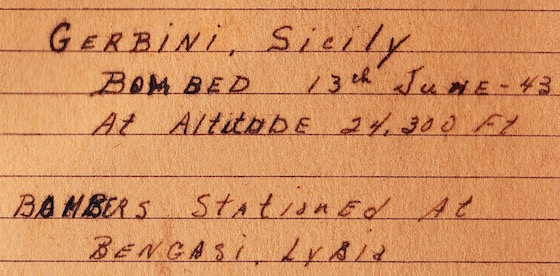 GERBINI, Sicily
BOMBED 13th JUNE-43
At AltitUDE 24,300 Ft
BOMBERS StAtionEd At
BENGASi, LyBiA